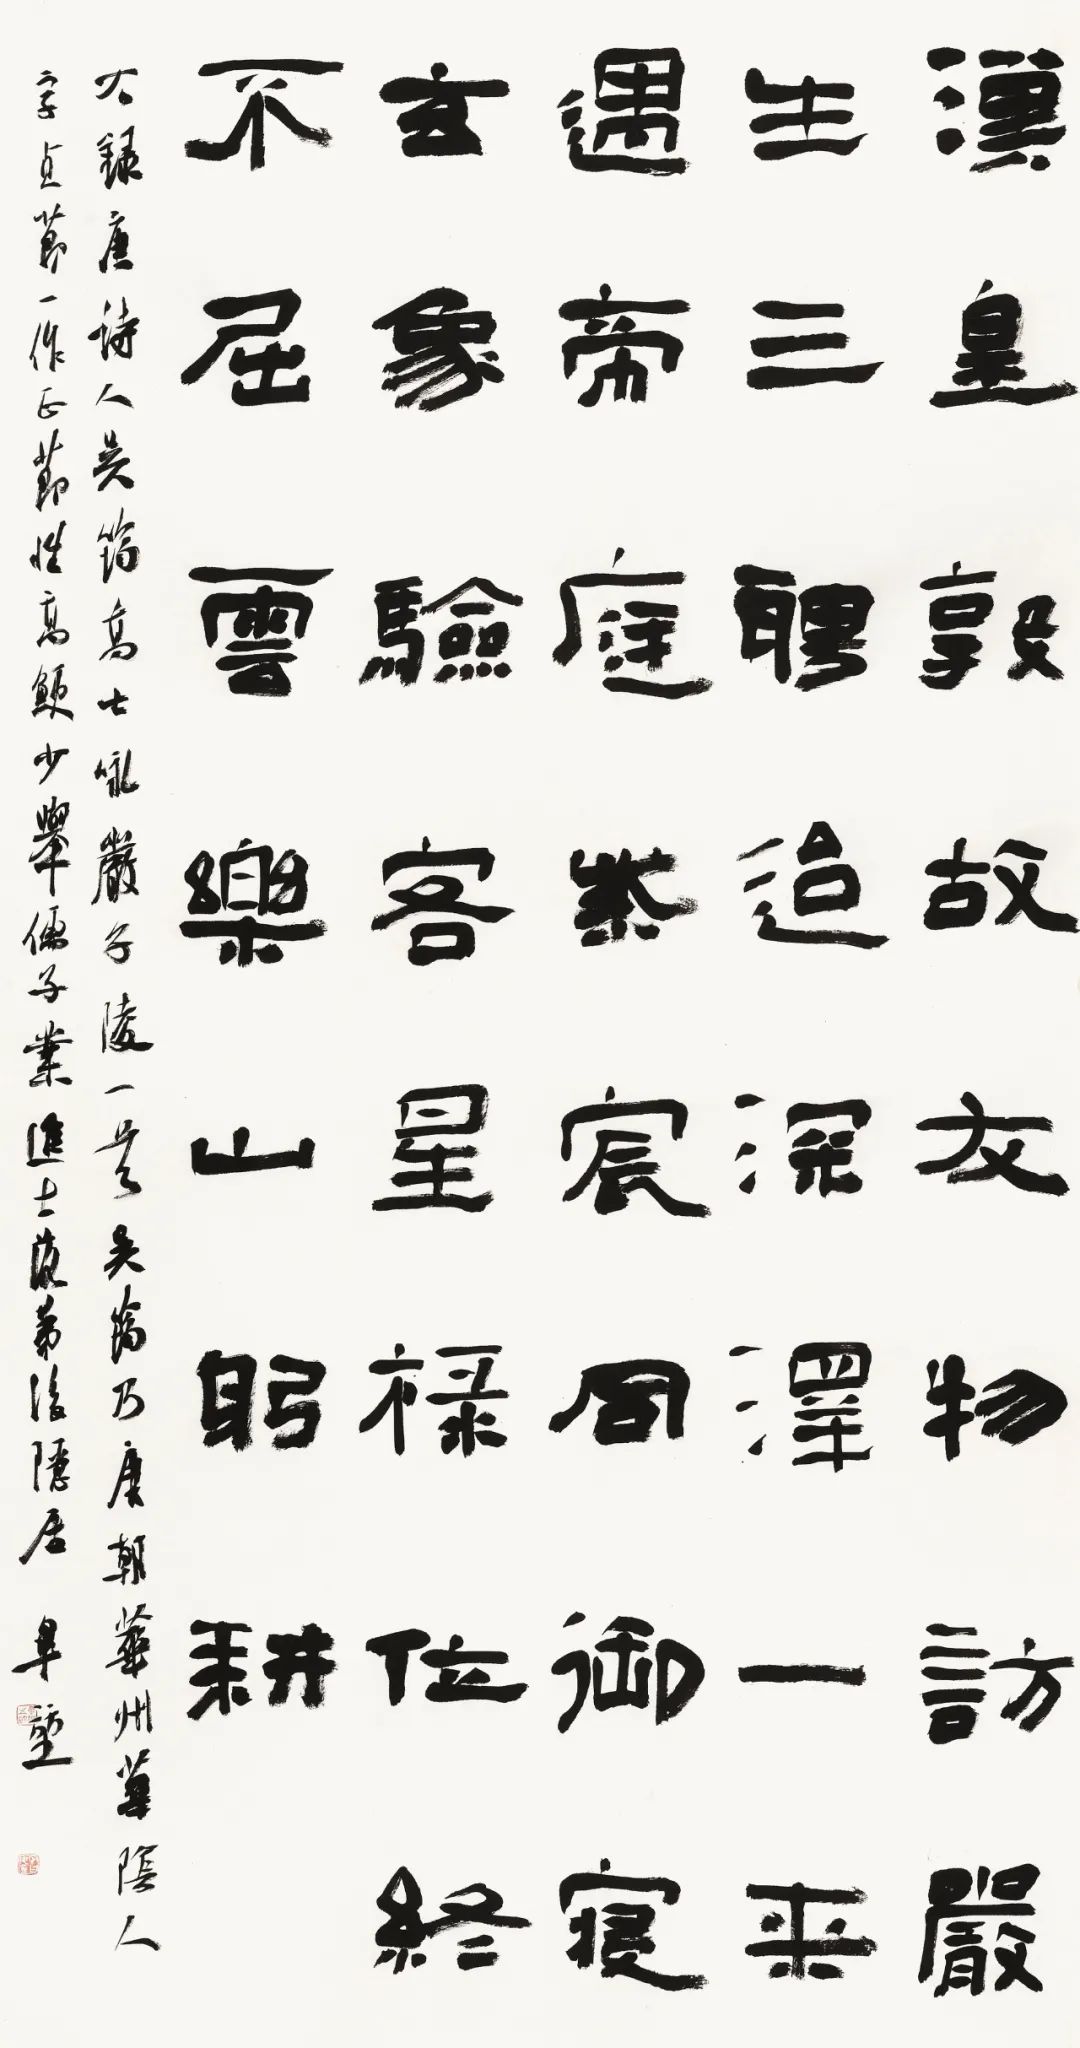 漢皇敦故友物訪嚴
生三聘迨深澤一来
遇帝庭紫宸同御寝
玄象驗客星禄位終
不屈雲樂山躬耕
右録唐詩人吴筠高士咏嚴子陵一首吴筠乃唐朝華州華陰人
字貞節一作正節性高鯁少舉儒子業進士落第後隱居 阜堃